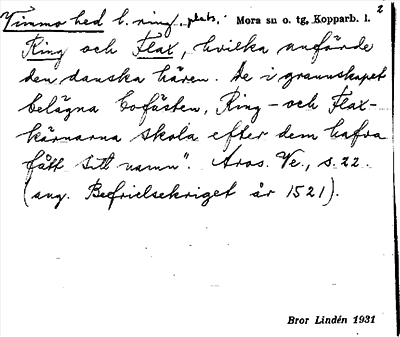 2
Timmo hed l. ring, plats, Mora sn o. tg, Kopparb. l.
Ring och Flax, hvilka anförde
den danska hären. De i grannskapet
belägna bofästen, Ring- och Flax-
kärnarna skola efter dem hafva
fått sitt namn". Aros. Ve., s. 22.
(ang. Befrielsekriget år 1521).
Bror Lindén 1931